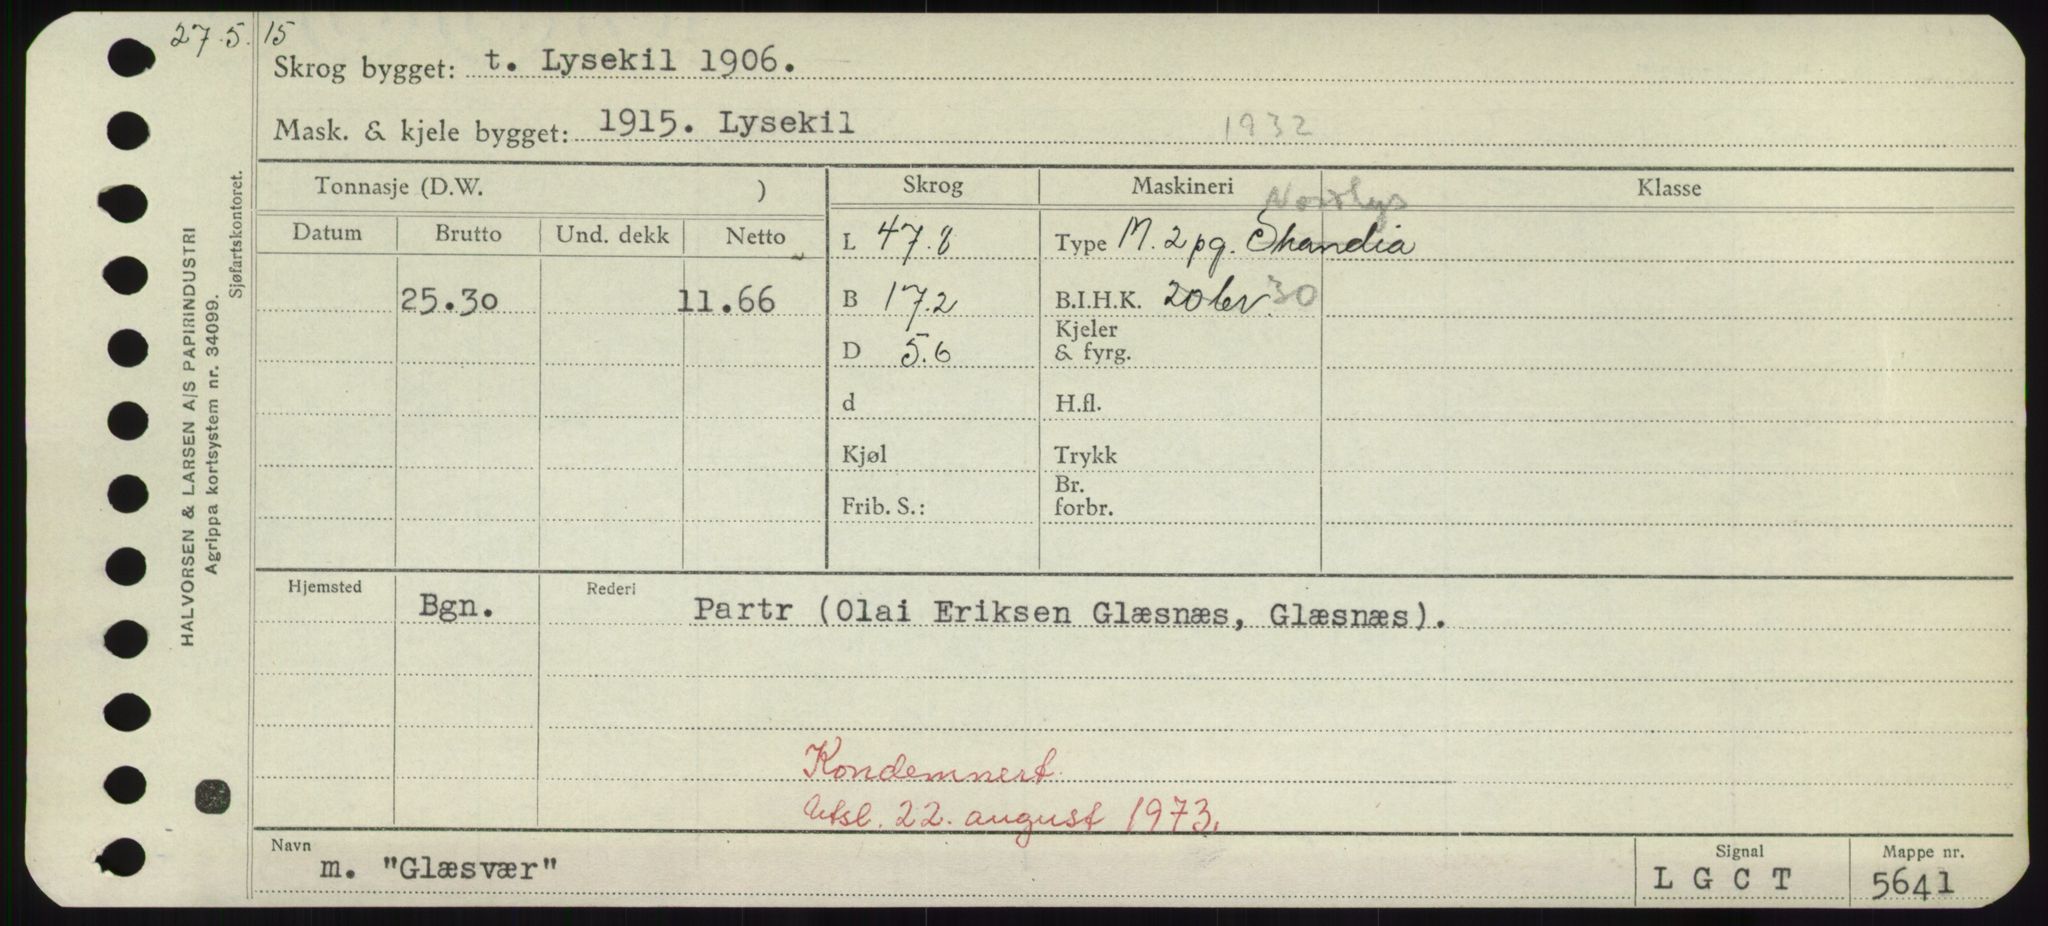 27.5.15
Skrog bygget: t. Lysekil 1906.
Mask. & kjele bygget: 1915. Lysekil 1932
Tonnasje (D.W. ) Skrog Maskineri Klasse
Norlys
Datum Brutto Und. dekk Netto L 47.8 Type M. 2pg. Skandia
25.30 11.66 B 17.2 B.I.H.K. 20 30
Kjeler
D 5.6 & fyrg.
d H.fl.
Kjøl Trykk
Br.
Frib. S.: forbr.
Hjemsted Bgn. Rederi Partr (Olai Eriksen Glæsnæs, Glæsnæs).
Kondemnert
Utsl. 22. august 1973.
Navn Signal Mappe nr.
m. "Glæsvær" L G C T 5641
HALVORSEN & LARSEN A/S PAPIRINDUSTRI
Agrippa kortsystem nr. 34099.
Sjøfartskontoret.